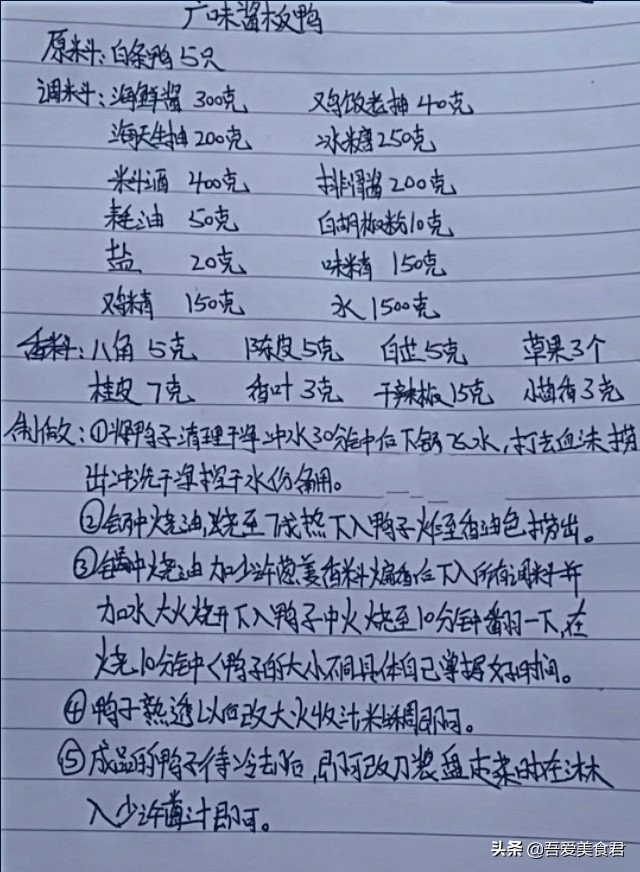 广味酱板鸭
原料:白条鸭5只
调料:海鲜酱 300克 鸡饭老抽 40克
海天生抽 200克 冰糖 250克
料酒 400克 排骨酱 200克
耗油 50克 白胡椒粉10克
盐 20克 味精 150克
鸡精 150克 水 1500克
香料:八角 5克 陈皮5克 白芷5克 草果3个
桂皮 7克 香叶 3克 干辣椒15克 小茴香3克
制做:①将鸭子清理干净冲水30分钟后下锅飞水,打去血沫捞
出冲洗干净控干水份备用。
②锅中烧油,烧至7成热下入鸭子炸至香油色捞出。
③锅中烧油加少许葱姜香料煸香后下入所有调料并
加水大火烧开下入鸭子中火烧至10分钟翻一下,在
烧10分钟<鸭子的大小不同具体自己掌握好时间。
④鸭子熟透以后改大火收汁粘稠即可。
⑤成品的鸭子待冷却后,即可改刀装盘走菜时在淋
入少许酱汁即可。
头条 @吾爱美食君